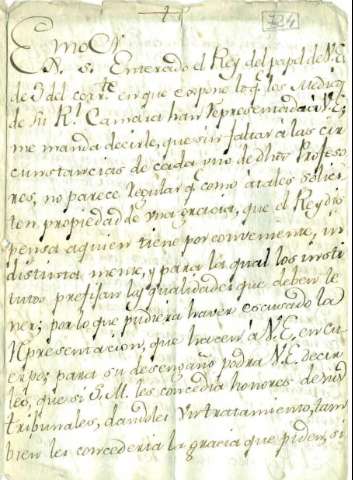 724
Emo Sr
S. Enterado el Rey del papel de V.E.
de 3 del corr.te en que expone lo q.e los Medicos
de su Rl. Camara han representado à V.E.
me manda decirle, que sin faltar à las cir
cunstancias de cada uno de dhos Profeso
res, no parece regular q.e como à tales solici
ten propiedad de una gracia, que el Rey dis
pensa aquien tiene por conveniente, in
distinta mente, y para la qual los insti
tutos prefijan las qualidades que deben te
ner; por lo que pudiera haver escusado la
Representacion, que hacen à V.E. en Cu
erpo; para su desengaño podra V.E. decir
les, que si S.M. les concedia honores de
tribunales, dandoles un tratamiento, tam
bien les concederia la gracia que piden, si